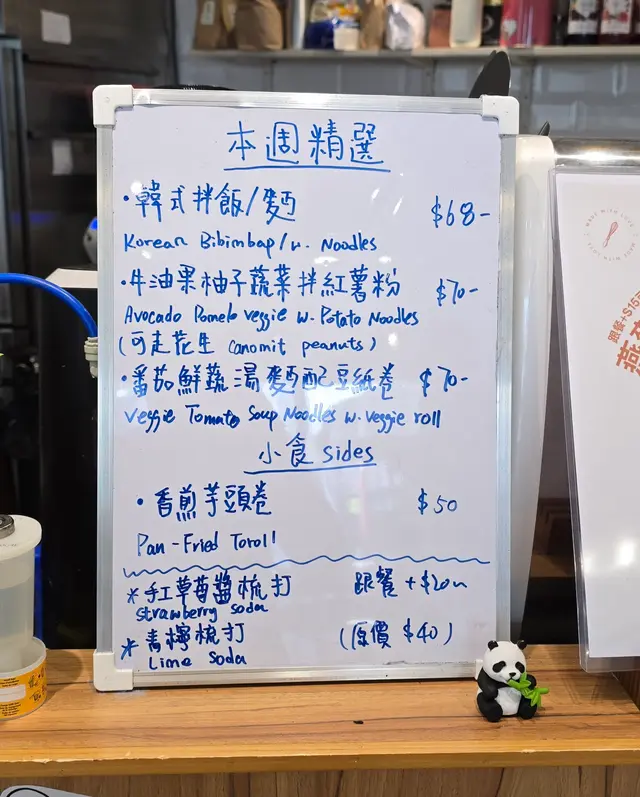 本週精選
・韓式拌飯/麵 $68-
Korean Bibimbap/w. Noodles
・牛油果柚子蔬菜拌紅薯粉 $70-
Avocado Pomelo veggie w. Potato Noodles
(可走花生 canomit peanuts)
・番茄鮮蔬湯麵配豆紙卷 $70-
Veggie Tomato Soup Noodles w. veggie roll
小食 sides
・香煎芋頭卷 $50
Pan-Fried Toroll
*手工草莓醬梳打 跟餐+$20
strawberry soda
*青檸梳打 (原價 $40)
Lime Soda
跟餐+$15